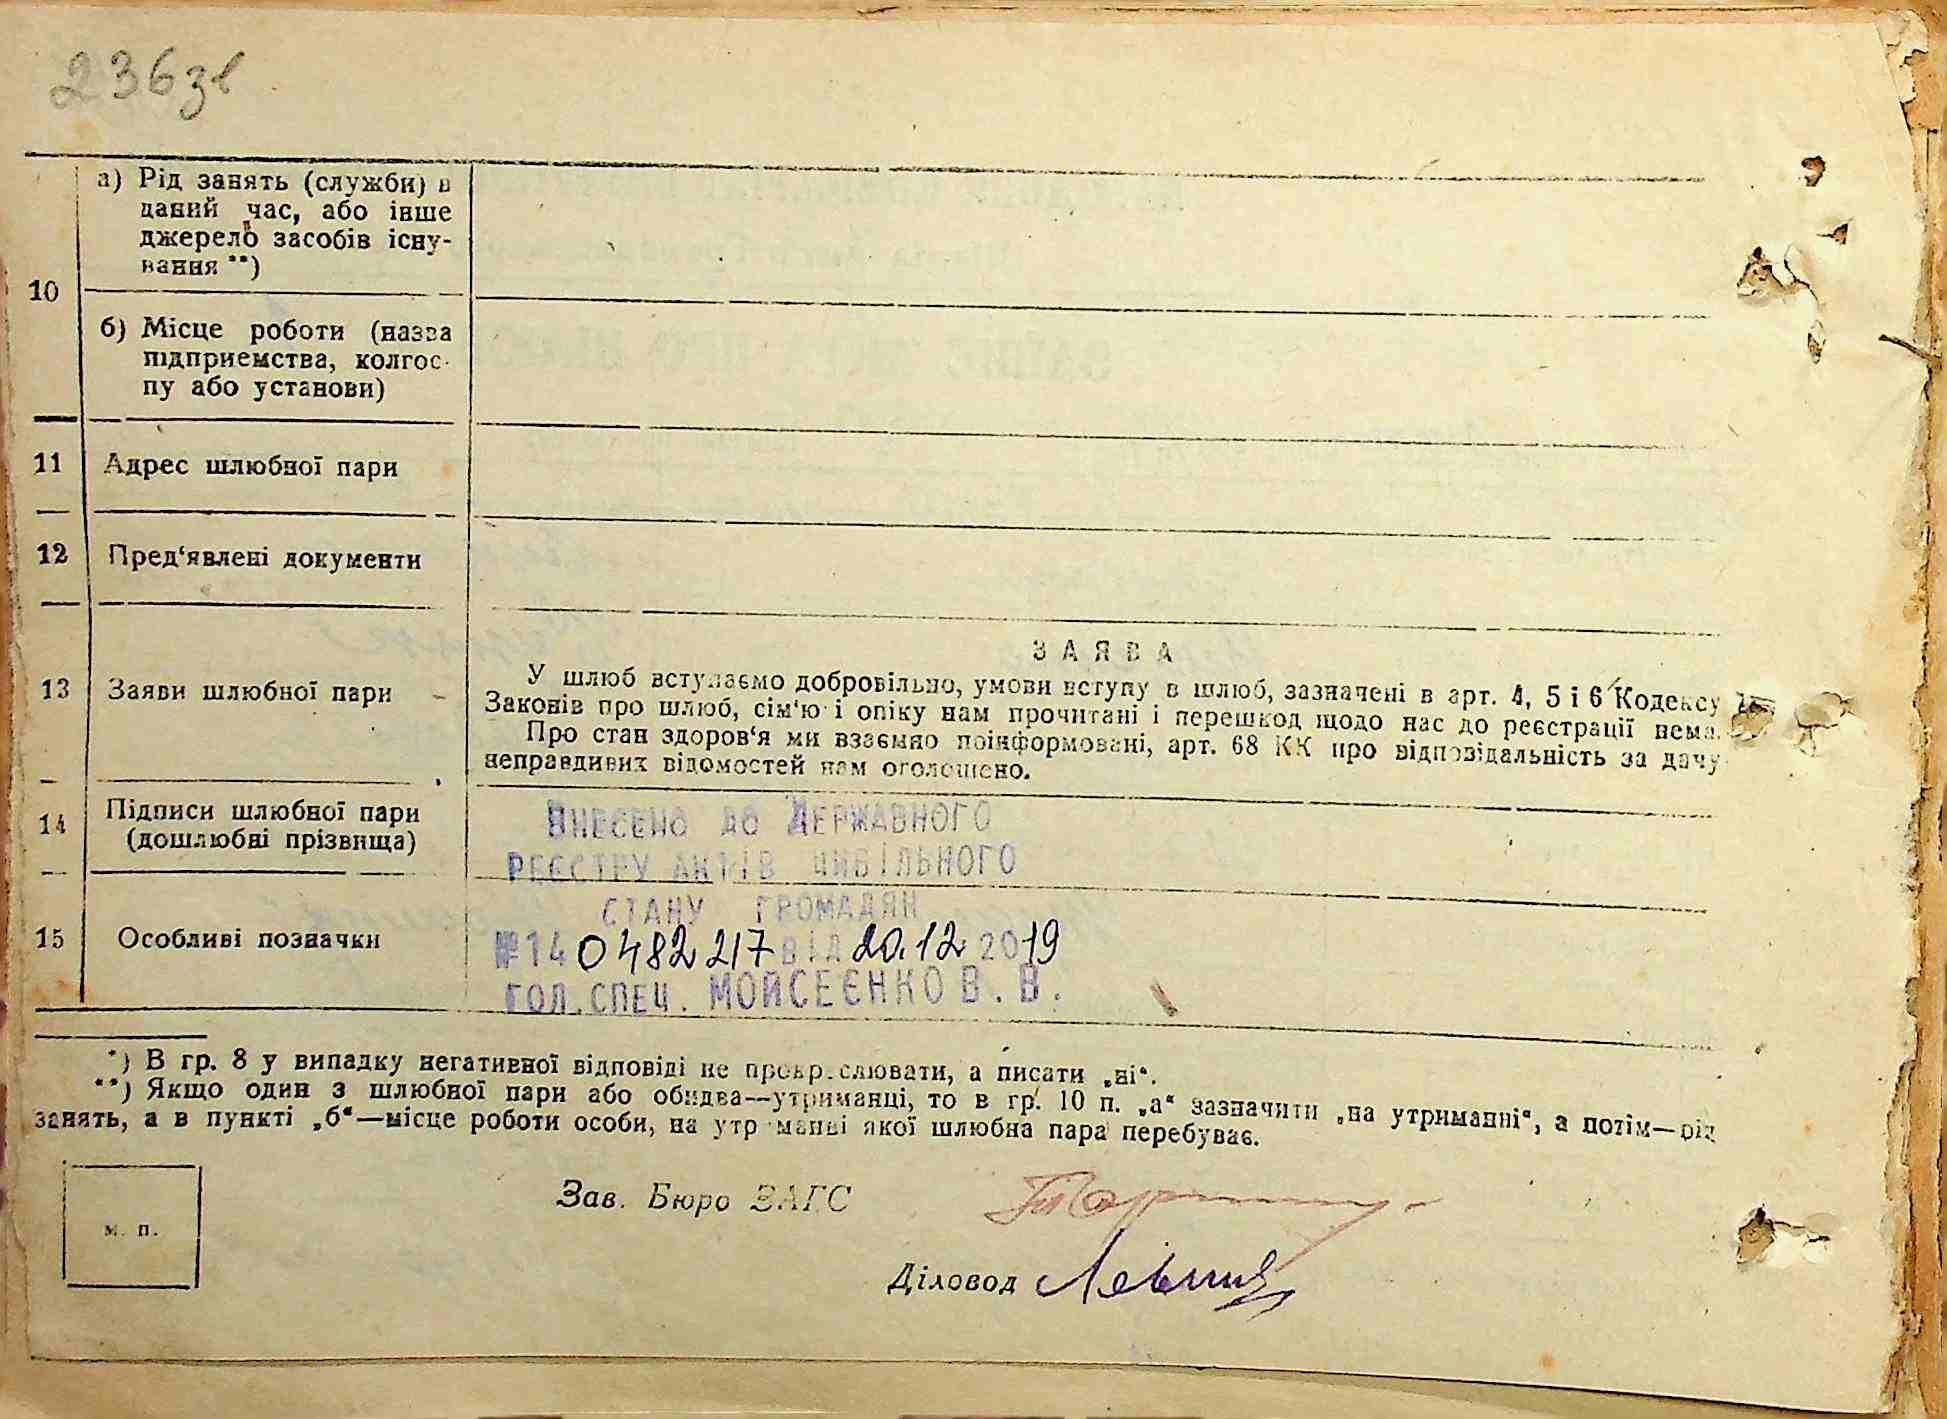 236зв
а) Рід занять (служби) в
даний час, або інше
джерело засобів існу-
вання **)
10
б) Місце роботи (назва
підприемства, колгос-
пу або установи)
11 Адрес шлюбної пари
12 Пред‘явлені документи
ЗАЯВА
13 Заяви шлюбної пари
У шлюб вступаємо добровільно, умови вступу в шлюб, зазначені в арт. 4, 5 і 6 Кодексу
Законів про шлюб, сім‘ю і опіку нам прочитані і перешкод щодо нас до реєстрації нема.
Про стан здоров‘я ми взаємно поінформовані, арт. 68 КК про відповідальність за дачу
неправдивих відомостей нам оголошено.
14 Підписи шлюбної пари
(дошлюбні прізвища)
ВНЕСЕНО ДО ДЕРЖАВНОГО
РЕЄСТРУ АКТІВ ЦИВІЛЬНОГО
СТАНУ ГРОМАДЯН
15 Особливі позначки
№140482217 ВІД 20.12 2019
ГОЛ.СПЕЦ. МОЙСЕЄНКО В.В.
*) В гр. 8 у випадку негативної відповіді не прокреслювати, а писати „ні“.
**) Якщо один з шлюбної пари або обидва—утриманці, то в гр. 10 п. „а“ зазначити „на утриманні“, а потім—рід
занять, а в пункті „б“—місце роботи особи, на утриманні якої шлюбна пара перебуває.
м. п.
Зав. Бюро ЗАГС
Діловод